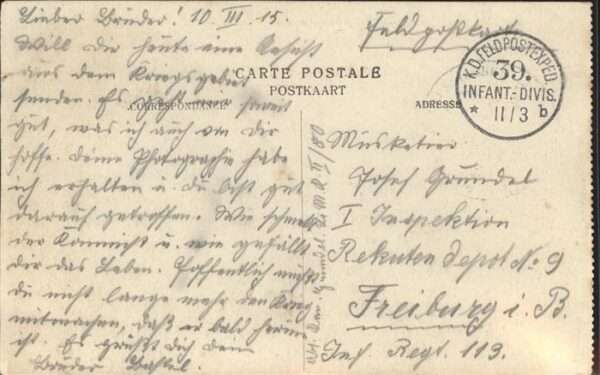 Lieber Bruder! 10. III. 15.
Will Dir heute eine Ansicht
aus dem Kriegsgebiet
senden. Es geht mir soweit
gut, was ich auch von Dir
hoffe. Deine Photographie habe
ich erhalten u. Du bist gut
darauf getroffen. Wie schmeckt
der Kommis u. wie gefällt
dir das Leben. Hoffentlich mußt
du nicht lange mehr den Krieg
mitmachen, daß er bald herum
ist. Es grüßt Dich dein
Bruder
Feldpostkarte
CARTE POSTALE
POSTKAART
CORRESPONDANCE
ADRESSE
K.D. FELDPOSTEXPED.
39.
INFANT.-DIVIS.
* 11/3 b
Musketier
Josef Gründel
I Inspektion
Rekruten depot No 9
Freiburg i. B.
Inf. Regt. 113.